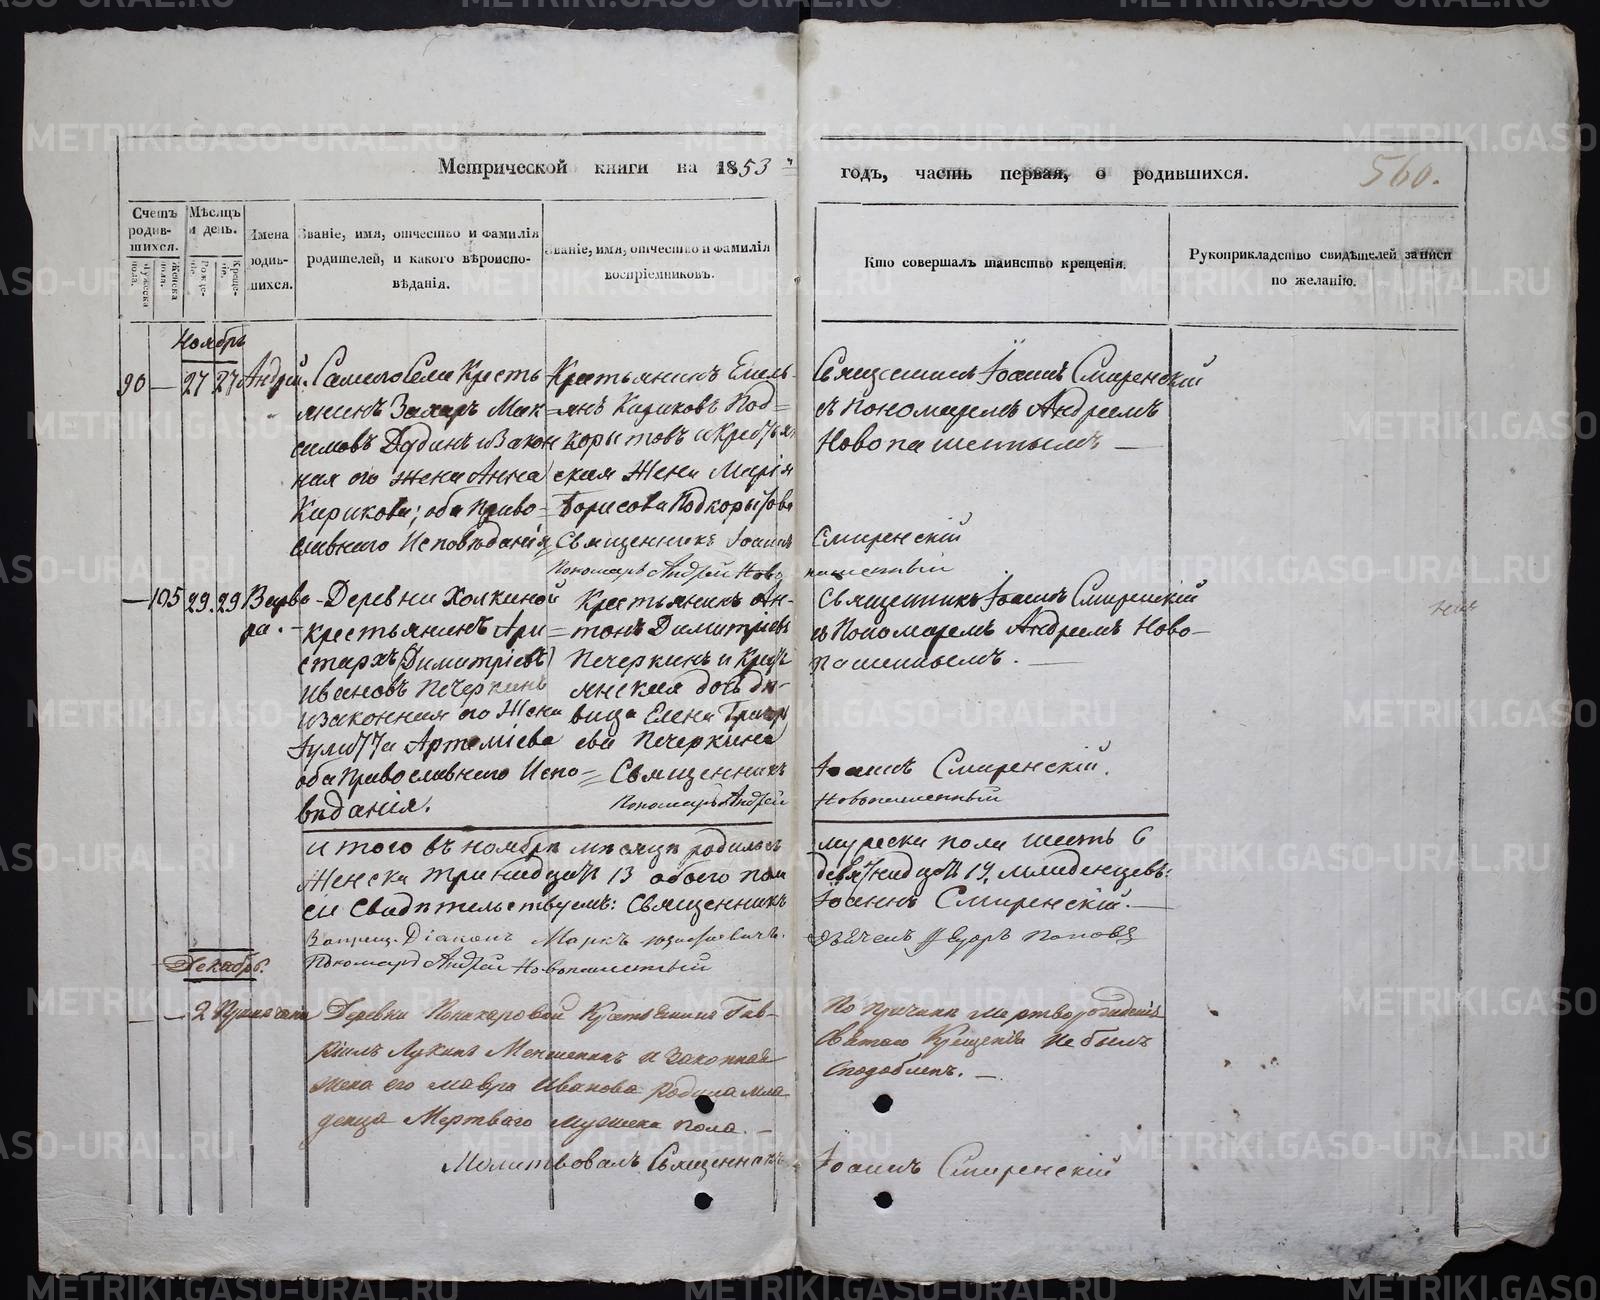 Метрической книги на 1853й годъ, часть первая, о родившихся.
560.
Счетъ родив-шихся.
Мужеска пола.
Женска пола.
Мѣсяцъ и день.
Рожде-
Креще-
Имена родив-шихся.
Званіе, имя, отчество и фамилія
родителей, и какого вѣроиспо-
вѣданія.
Званіе, имя, отчество и фамилія
воспріемниковъ.
Кто совершалъ таинство крещенія.
Рукоприкладство свидѣтелей записи
по желанію.
Ноябрь
90 — 27 27 Андрей.
Самаго Села Кресть
янинъ Захаръ Мак=
симовъ Дудинъ и Закон
ная его жена Анна
Кирикова; оба Право-
славнаго Исповѣданія
Крестьянинъ Емель-
янъ Кириковъ Под=
корытовъ и Крестьян
ская Жена Марія
Борисова Подкорытова
Священникъ Іоаннъ Смиренскій
Пономарь Андрей Новопашенный
Священникъ Іоаннъ Смиренскій
съ Пономаремъ Андреемъ
Новопашеннымъ —
— 105 29. 29 Варва-
ра. -
Деревни Холкиной
крестьянинъ Ари=
стархъ (Димитріевъ)
Ивановъ Печеркинъ
и законная его Жена
Іулитта Артеміева
оба Православнаго Испо=
вѣданія.
Крестьянинъ Ан-
тонъ Димитріевъ
Печеркинъ и Кресть
янская дочь дѣ-
вица Елена Григорь
ева Печеркина
Священникъ Іоаннъ Смиренскій.
Пономарь Андрей Новопашенный
Священникъ Іоаннъ Смиренскій
съ Пономаремъ Андреемъ Ново-
пашеннымъ. —
Итого въ ноябрѣ мѣсяцѣ родилось мужеска пола шесть 6
Женска тринадцать 13 обоего пола девятнадцать 19. младенцевъ:
въ чемъ Свидѣтельствуемъ: Священникъ Іоаннъ Смиренскій. —
Запрещ. Діаконъ Маркъ Дьячекъ Егоръ Поповъ
Пономарь Андрей Новопашенный
Декабрь.
— — 2 Примѣчаніе
Деревни Понкаровой Крестьянина Гав-
ріилъ Лукинъ и Законная
жена его Мавра Иванова Родила мла
денца Мертваго Мужска пола. —
По Причинѣ мертворожденія
Святаго Крещенія не былъ
сподобленъ. —
Молитвовалъ Священникъ Іоаннъ Смиренскій
METRIKI.GASO-URAL.RU